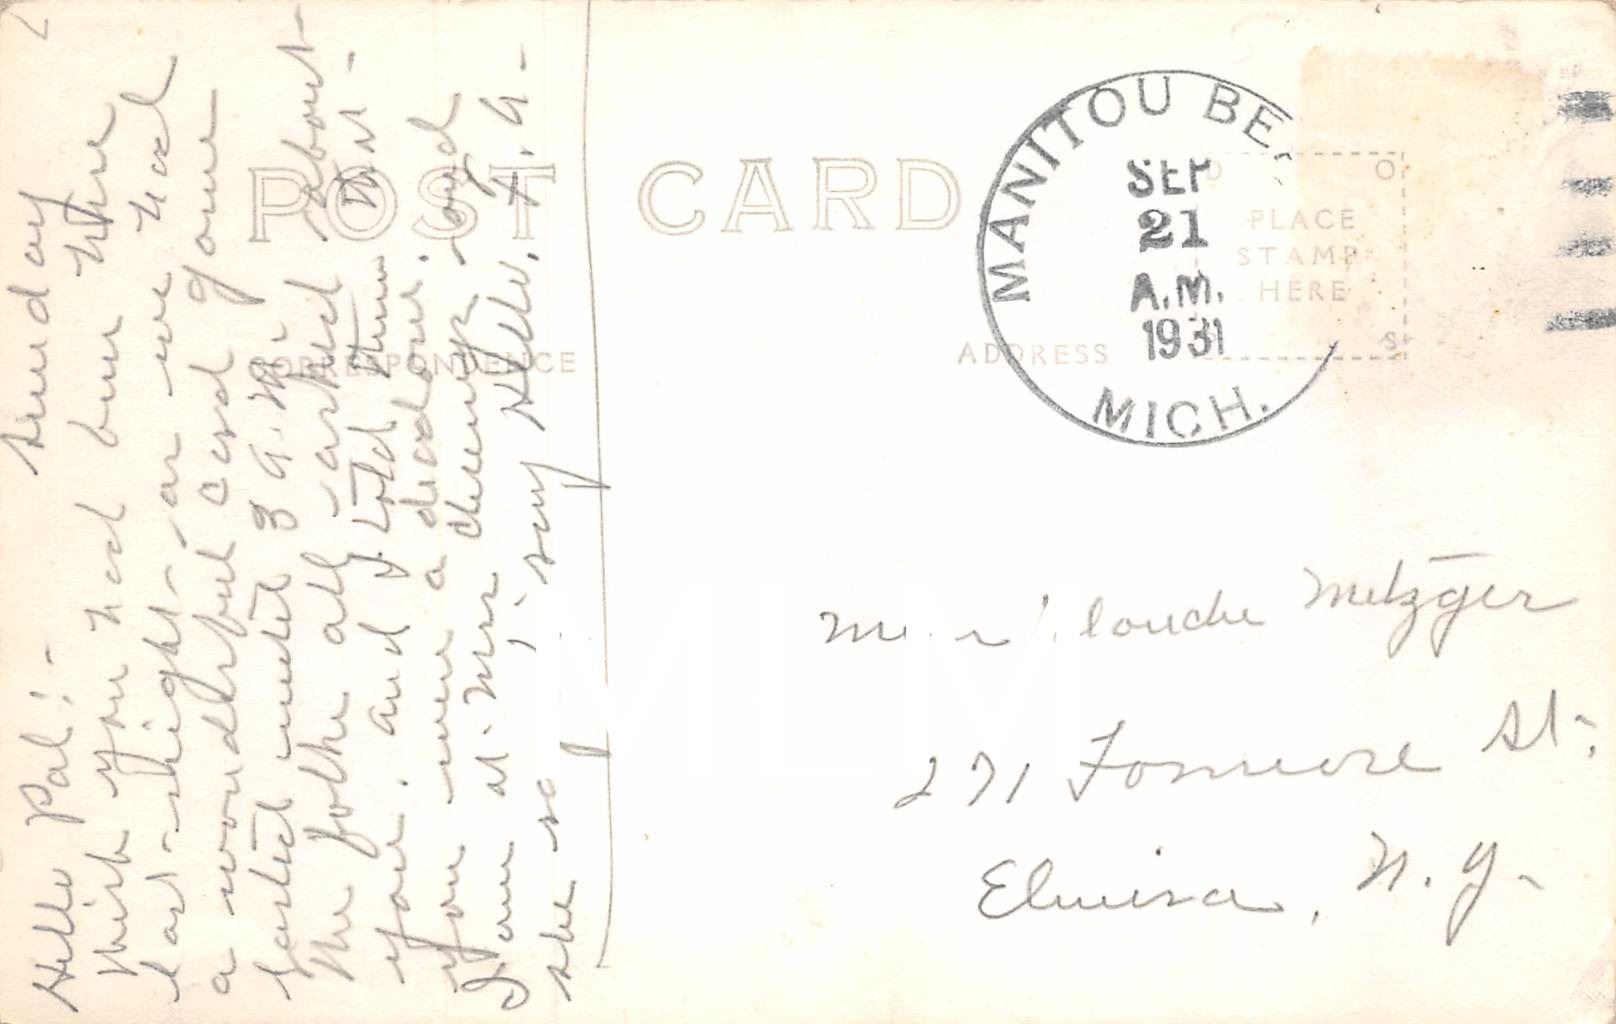 Sunday
Hello Pal:-
Wish you had been here
last night - as we had
a wonderful card game
lasted until 3 a.m.
The folks all asked about
you. and I told them that
you were a deadow.
I am at Mrs and
she so I say Hello. F. G.
POST CARD
CORRESPONDENCE
ADDRESS
PLACE
STAMP
HERE
MANITOU BE
SEP
21
A.M.
1931
MICH.
Metzger
271 Formore St.
Elmira, N. Y.
MLM